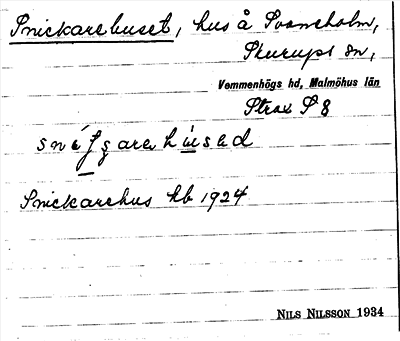 Snickarehuset, hus å Svaneholm,
Skurups sn,
Vemmenhögs hd, Malmöhus län
Strax S 8
Snickarehus kb 1924
NILS NILSSON 1934